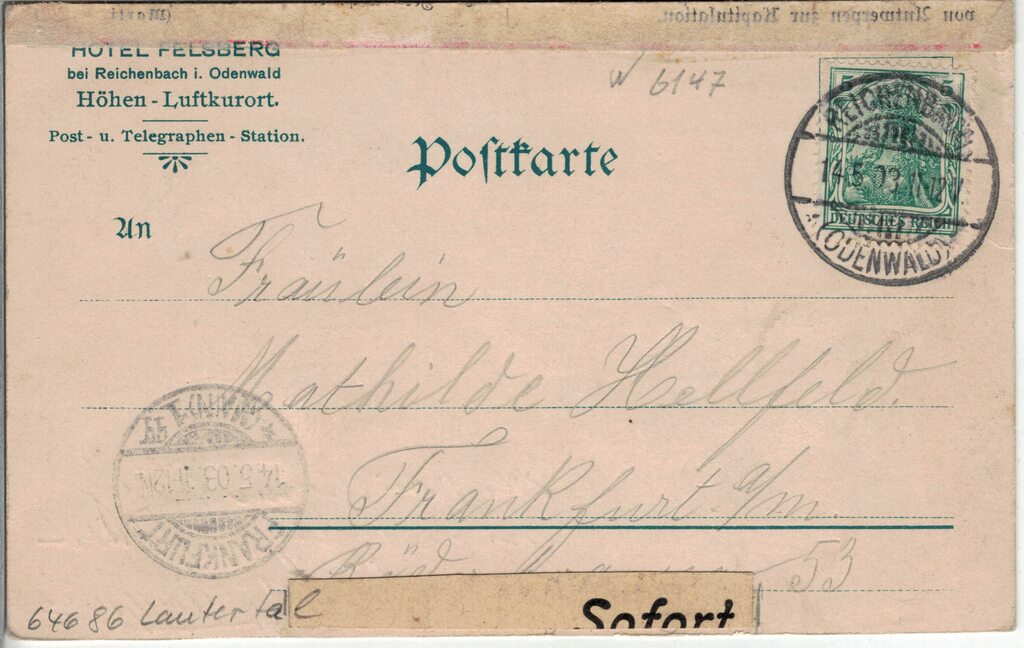 von Antwerpen zur Kapitulation
HOTEL FELSBERG
bei Reichenbach i. Odenwald
Höhen - Luftkurort.
Post- u. Telegraphen - Station.
W 6147
Postkarte
5 5
DEUTSCHES REICH
REICHENBACH
14.5.03
(ODENWALD)
An
Fräulein
Mathilde Hellfeld.
Frankfurt a/m.
53
(MAIN) 1
14.5.03.
FRANKFURT
64686 Lautertal
Sofort